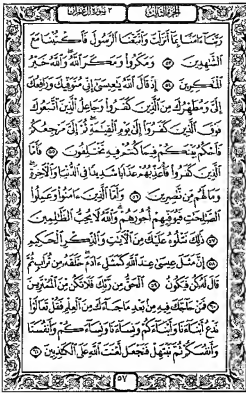 الجزء الثالث ٣ سورة آل عمران
رَبَّنَآ ءَامَنَّا بِمَآ أَنزَلْتَ وَٱتَّبَعْنَا ٱلرَّسُولَ فَٱكْتُبْنَا مَعَ
ٱلشَّٰهِدِينَ ٥٣ وَمَكَرُوا۟ وَمَكَرَ ٱللَّهُ وَٱللَّهُ خَيْرُ
ٱلْمَٰكِرِينَ ٥٤ إِذْ قَالَ ٱللَّهُ يَٰعِيسَىٰٓ إِنِّى مُتَوَفِّيكَ وَرَافِعُكَ
إِلَىَّ وَمُطَهِّرُكَ مِنَ ٱلَّذِينَ كَفَرُوا۟ وَجَاعِلُ ٱلَّذِينَ ٱتَّبَعُوكَ
فَوْقَ ٱلَّذِينَ كَفَرُوٓا۟ إِلَىٰ يَوْمِ ٱلْقِيَٰمَةِ ثُمَّ إِلَىَّ مَرْجِعُكُمْ
فَأَحْكُمُ بَيْنَكُمْ فِيمَا كُنتُمْ فِيهِ تَخْتَلِفُونَ ٥٥ فَأَمَّا
ٱلَّذِينَ كَفَرُوا۟ فَأُعَذِّبُهُمْ عَذَابًا شَدِيدًا فِى ٱلدُّنْيَا وَٱلْءَاخِرَةِ
وَمَا لَهُم مِّن نَّٰصِرِينَ ٥٦ وَأَمَّا ٱلَّذِينَ ءَامَنُوا۟ وَعَمِلُوا۟
ٱلصَّٰلِحَٰتِ فَيُوَفِّيهِمْ أُجُورَهُمْ وَٱللَّهُ لَا يُحِبُّ ٱلظَّٰلِمِينَ
٥٧ ذَٰلِكَ نَتْلُوهُ عَلَيْكَ مِنَ ٱلْءَايَٰتِ وَٱلذِّكْرِ ٱلْحَكِيمِ
٥٨ إِنَّ مَثَلَ عِيسَىٰ عِندَ ٱللَّهِ كَمَثَلِ ءَادَمَ خَلَقَهُۥ مِن تُرَابٍ ثُمَّ
قَالَ لَهُۥ كُن فَيَكُونُ ٥٩ ٱلْحَقُّ مِن رَّبِّكَ فَلَا تَكُن مِّنَ ٱلْمُمْتَرِينَ
٦٠ فَمَنْ حَآجَّكَ فِيهِ مِنۢ بَعْدِ مَا جَآءَكَ مِنَ ٱلْعِلْمِ فَقُلْ تَعَالَوْا۟
نَدْعُ أَبْنَآءَنَا وَأَبْنَآءَكُمْ وَنِسَآءَنَا وَنِسَآءَكُمْ وَأَنفُسَنَا
وَأَنفُسَكُمْ ثُمَّ نَبْتَهِلْ فَنَجْعَل لَّعْنَتَ ٱللَّهِ عَلَى ٱلْكَٰذِبِينَ ٦١
٥٧